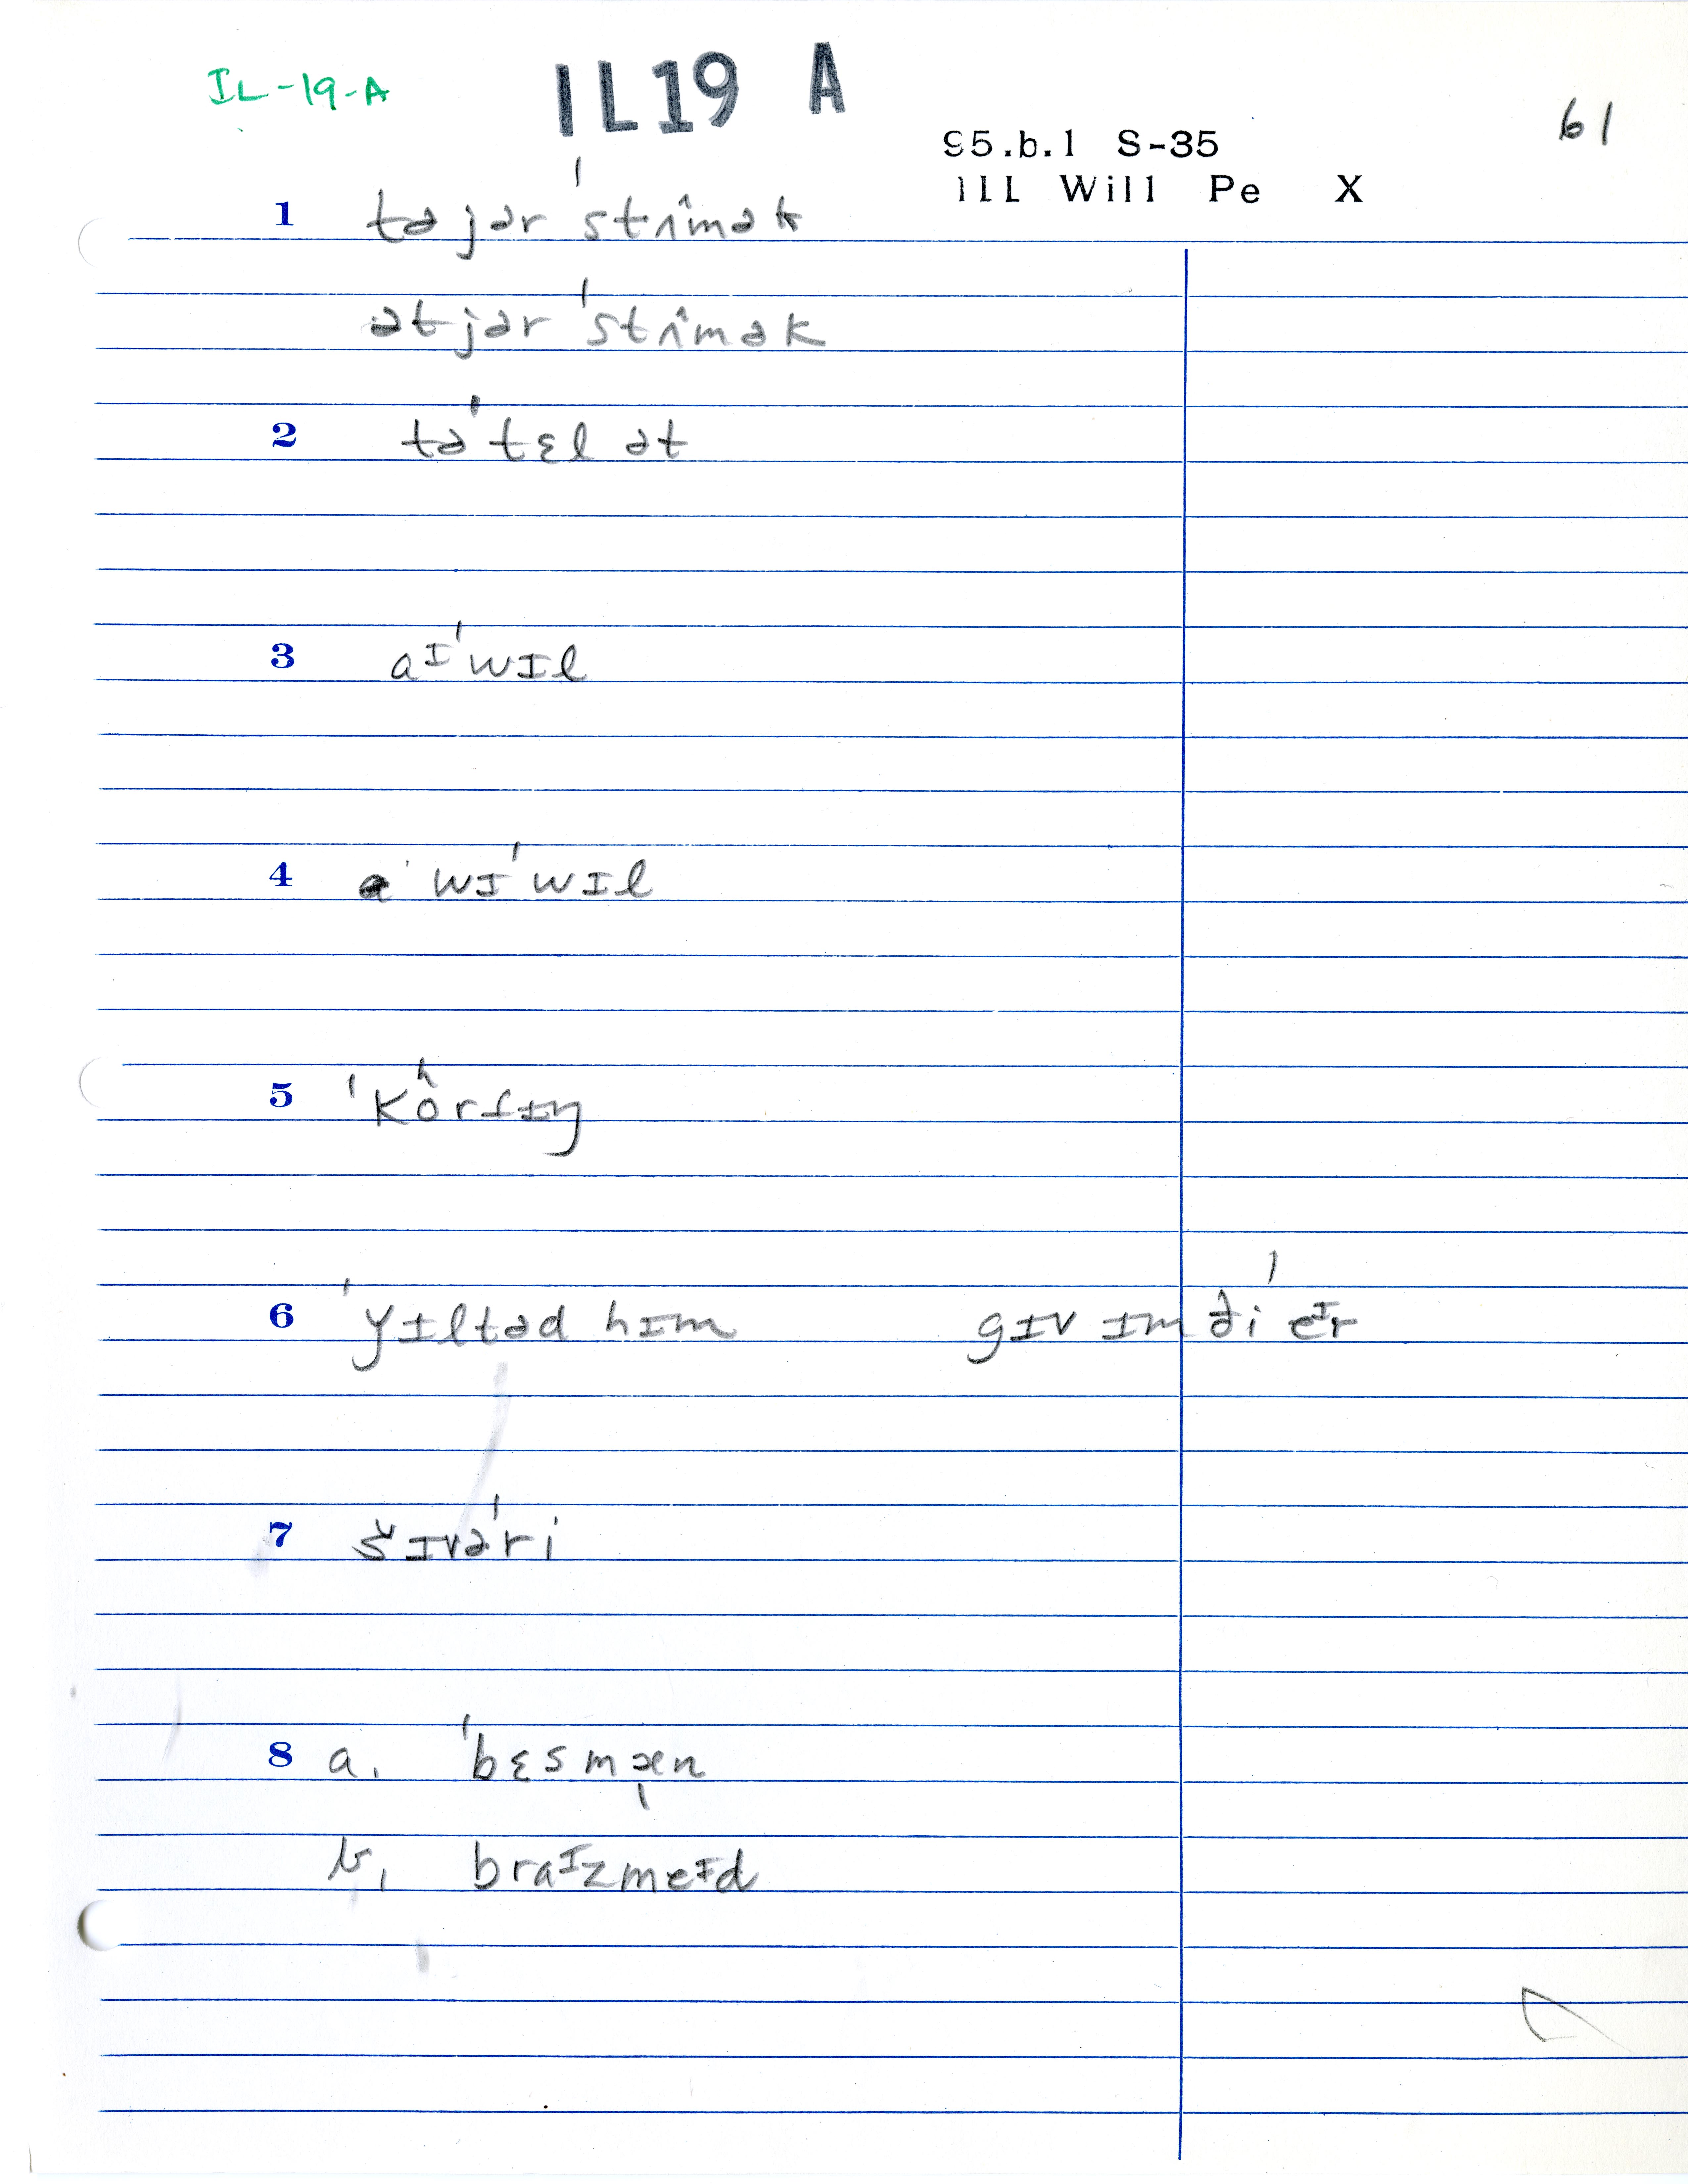 IL-19-A
IL19 A
61
95.b.1 S-35
ILL Will Pe X
1 tə jər ˈstʌ̂mək
ət jər ˈstʌ̂mək
2 təˈtɛl ət
3 aᴵˈwɪl
4 a wɪˈwɪl
5 ˈkʰôrfɪŋ
6 ˈyɪltəd hɪm gɪv ɪm ði eᴵr
7 šɪvəˈri
8 a. ˈbɛs mæn
b. braᴵzmeᴵd